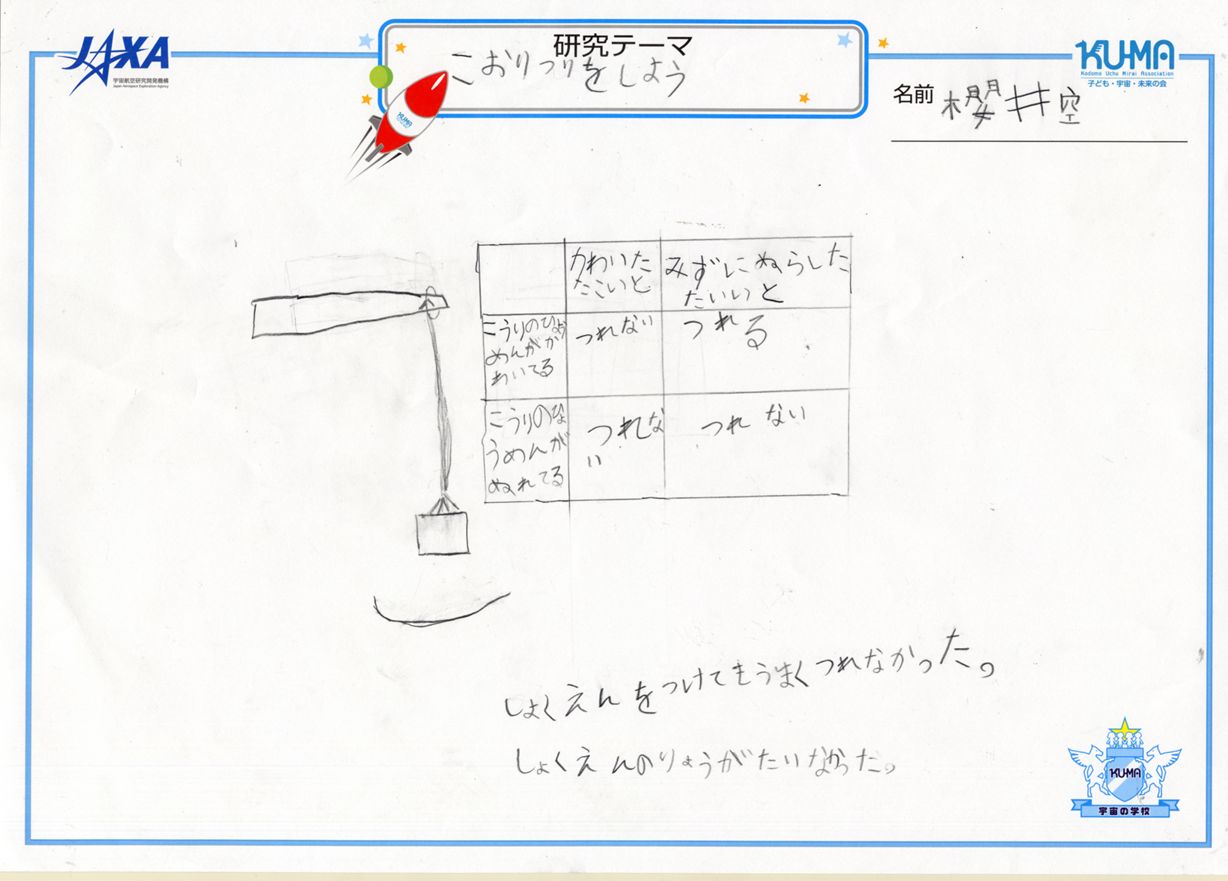 JAXA
宇宙航空研究開発機構
Japan Aerospace Exploration Agency
研究テーマ
こおりつりをしよう
KUMA
KUMA
Kodomo Uchu Mirai Association
子ども・宇宙・未来の会
名前 櫻井空
かわいた
たこいと
みずにぬらした
たいいと
こうりのひょう
めんがか
わいてる
つれない
つれる
こうりのひょ
うめんが
ぬれてる
つれな
い
つれない
しょくえんをつけてもうまくつれなかった。
しょくえんのりょうがたいなかった。
KUMA
宇宙の学校